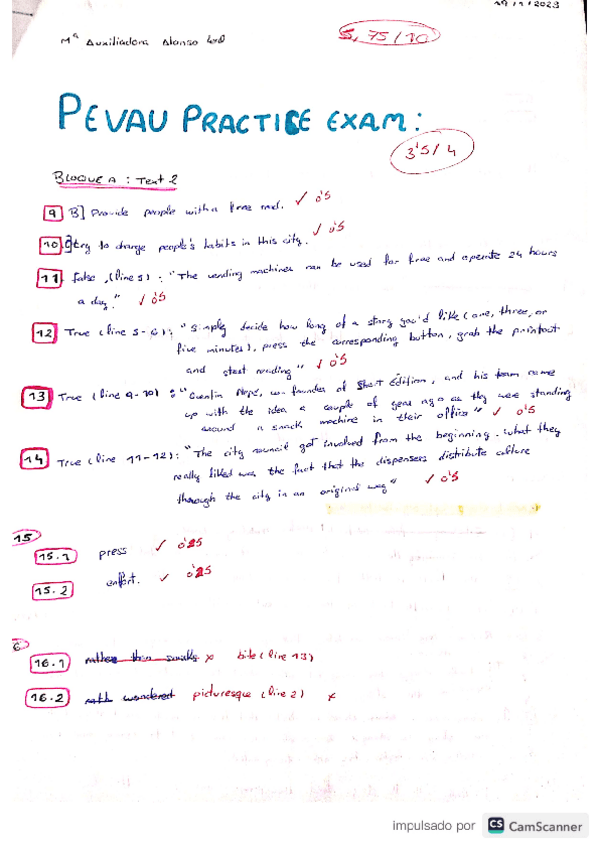 19/1/2023
Mª Auxiliadora Alonso
5,75/10
PEVAU PRACTICE EXAM:
3'5/4
BLOQUE A: Text 2
9 B] Provide people with a free read. ✓ 0'5
10 try to change people's habits in this city. ✓ 0'5
11 False, (line 5): "The vending machines can be used for free and operate 24 hours
a day." ✓ 0'5
12 True (line 5-6): "Simply decide how long of a story you'd like (one, three, or
five minutes), press the corresponding button, grab the printout
and start reading" ✓ 0'5
13 True (line 9-10): "Quentin Plepé, co-founder of Short Edition, and his team came
up with the idea a couple of years ago as they were standing
around a snack machine in their office" ✓ 0'5
14 True (line 11-12): "The city council got involved from the beginning. What they
really liked was the fact that the dispensers distribute culture
through the city in an original way" ✓ 0'5
15
15.1 press ✓ 0'25
15.2 effort. ✓ 0'25
6
16.1 rather than smalls x bite (line 13)
16.2 wondered picturesque (line 2) x
impulsado por CS CamScanner